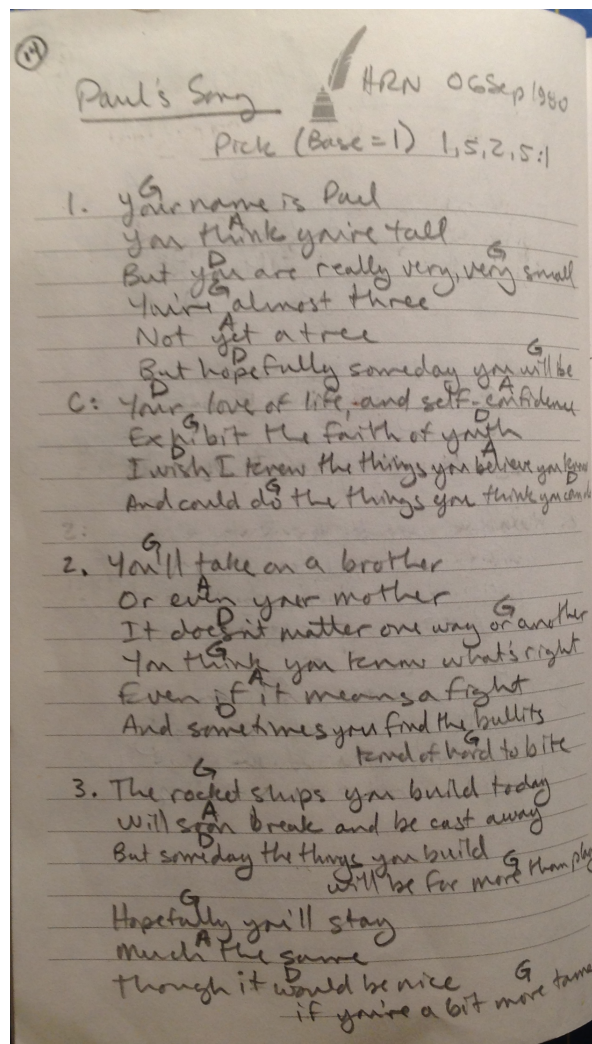 14
Paul's Song HRN 06Sep1980
Pick (Base = 1) 1,5,2,5:1
G
1. Your name is Paul
A
You think you're tall
D G
But you are really very, very small
G
You're almost three
A
Not yet a tree
D G
But hopefully someday you will be
D A
C: Your love of life, and self-confidence
G D
Exhibit the faith of youth
D A
I wish I knew the things you believe you know
G D
And could do the things you think you can do
2:
G
2. You'll take on a brother
A
Or even your mother
D G
It doesn't matter one way or another
G
You think you know what's right
A
Even if it means a fight
D
And sometimes you find the bullits
G
kind of hard to bite
G
3. The rocket ships you build today
A
Will soon break and be cast away
D
But someday the things you build
G
will be far more than play
G
Hopefully you'll stay
A
Much the same
D G
Though it would be nice
if you're a bit more tame